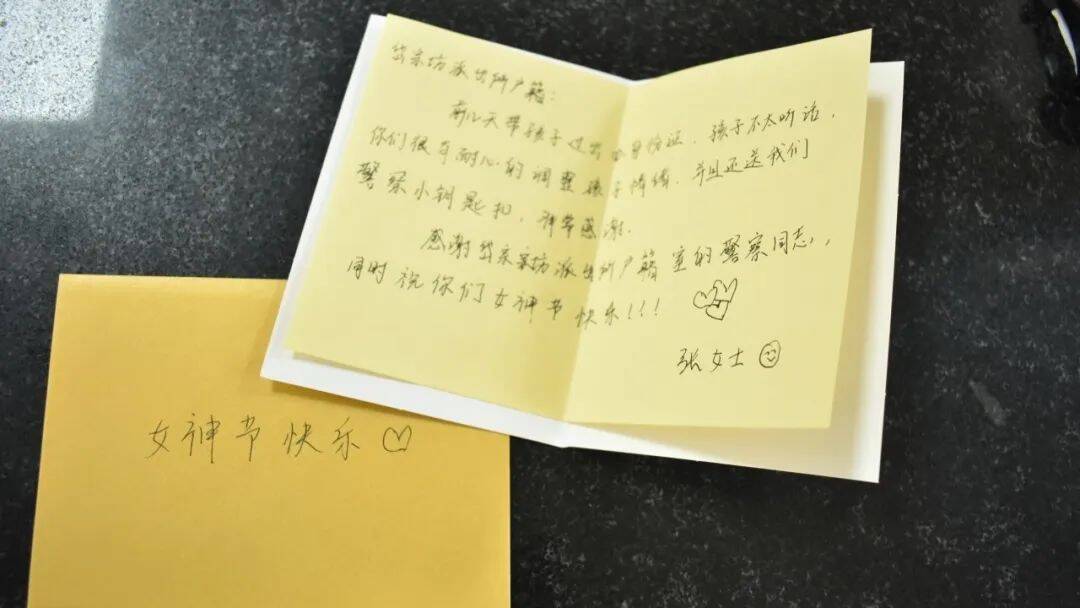 岱宗坊派出所户籍：
前几天带孩子过去办身份证，孩子不太听话，
你们很有耐心的调整孩子情绪，并且还送我们
警察小钥匙扣，非常感谢.
感谢岱宗坊派出所户籍室的警察同志，
同时祝你们女神节快乐!!!
张女士
女神节快乐